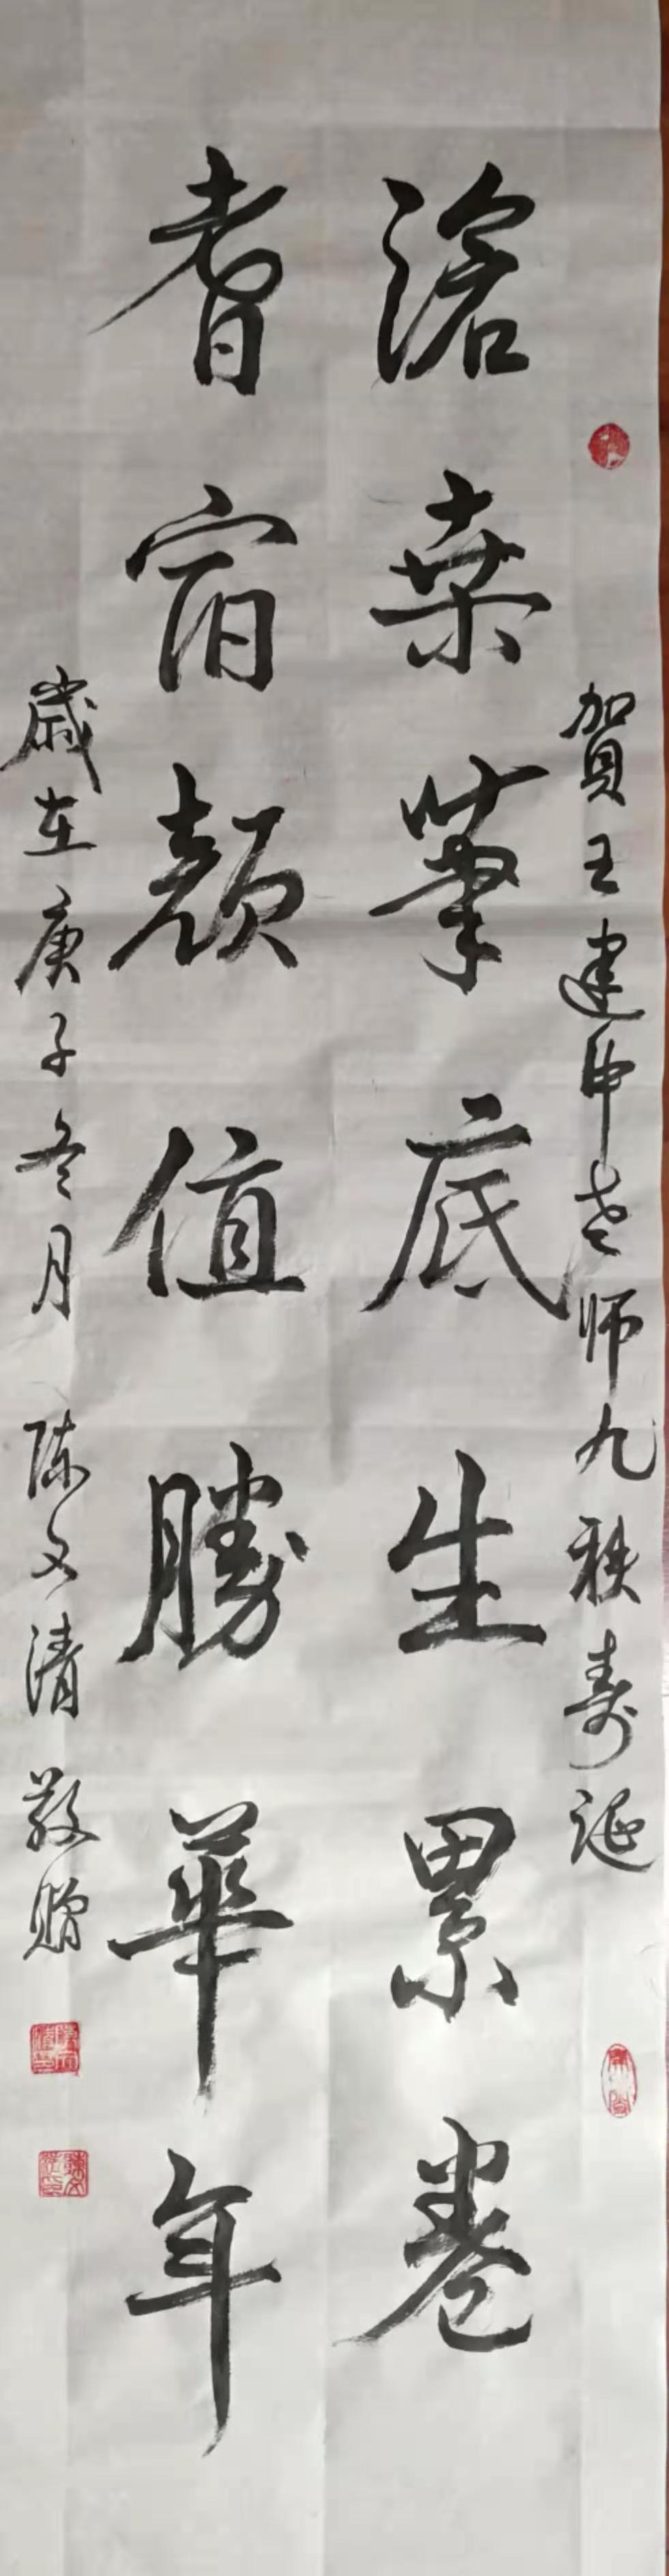 賀王建申老师九秩寿诞
滄桑筆底生累卷
耆宿顔值勝華年
歳在庚子冬月 陈文清敬赠